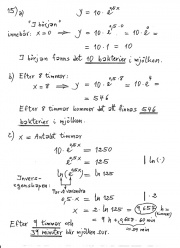 15) a) y = 10·e^0,5x
"I början"
innebär: x = 0 ⇒ y = 10·e^0,5·0 = 10·e^0 =
= 10·1 = 10
I början fanns det 10 bakterier i mjölken.
b) Efter 8 timmar:
x = 8 ⇒ y = 10·e^0,5·8 = 10·e^4 =
≈ 546
Efter 8 timmar kommer det att finnas 546
bakterier i mjölken.
c) x = Antalet timmar
10·e^0,5x = 1250
e^0,5x = 125 | ln( )
Invers-
egenskapen:
0,5·x = ln 125 | ·2
x = 2·ln 125 = 9,656 h
Efter 9 timmar och
39 minuter blir mjölken sur.